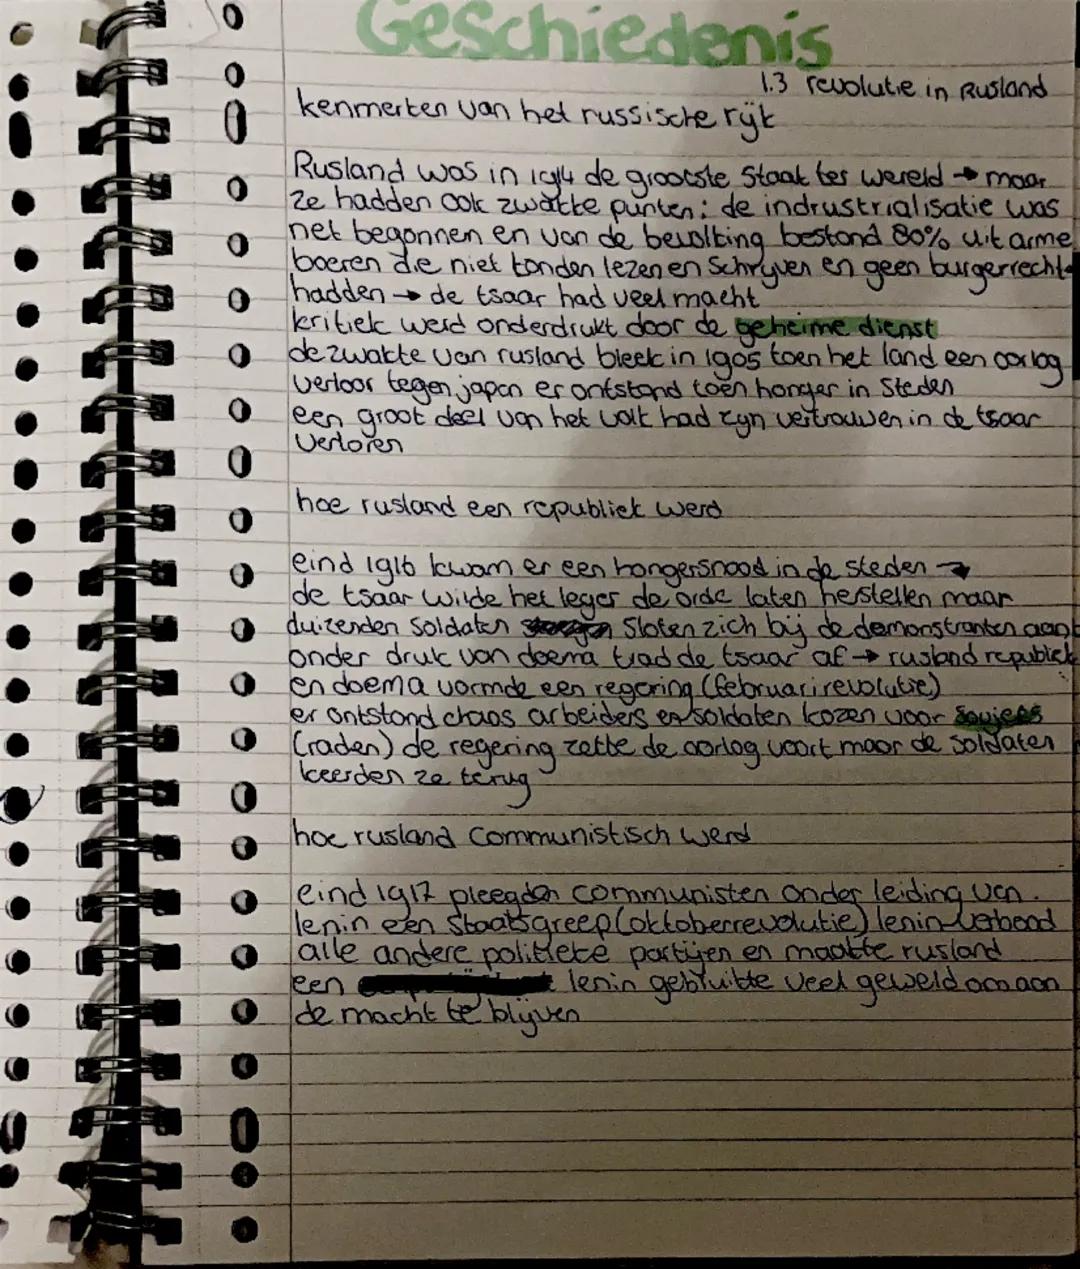 Geschiedenis
1.3 revolutie in Rusland
kenmerken van het russische rijk
Rusland was in 1914 de grootste Staat ter wereld → maar
Ze hadden ook zwakke punten: de indrustrialisatie was
net begonnen en van de bevolking bestond 80% uit arme
boeren die niet konden lezen en Schrijven en geen burgerrecht
hadden → de tsaar had veel macht
kritiek werd onderdrukt door de geheime dienst
de zwakte van rusland bleek in 1905 toen het land een oorlog
verloor tegen japan er ontstond toen honger in Steden
een groot deel van het volk had zijn vertrouwen in de tsaar
verloren
hoe rusland een republiek werd
eind 1916 kwam er een hongersnood in de steden →
de tsaar wilde het leger de orde laten herstellen maar
duizenden Soldaten Sloten zich bij de demonstranten aan
onder druk van doema trad de tsaar af → rusland republiek
en doema vormde een regering (februari revolutie)
er ontstond chaos arbeiders en soldaten kozen voor Sovjets
(raden) de regering zette de oorlog voort maar de Soldaten
keerden ze terug
hoe rusland Communistisch werd
eind 1917 pleegden communisten onder leiding van
lenin een Staatsgreep (oktoberrevolutie) lenin verbood
alle andere politieke partijen en maakte rusland
een lenin gebruikte veel geweld om aan
de macht te blijven